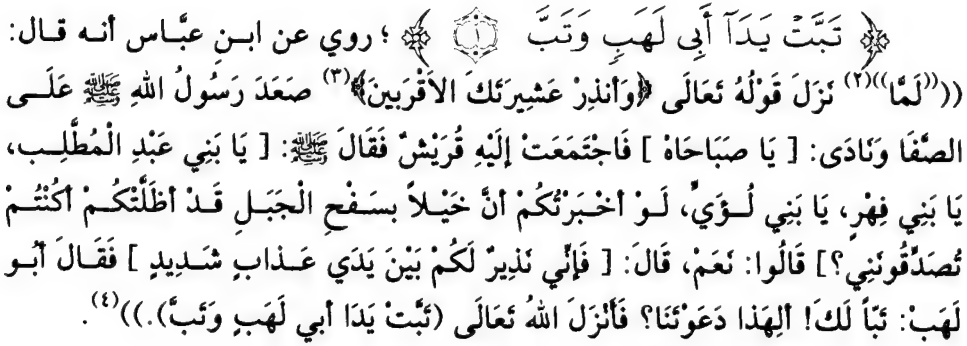 ﴿ تَبَّتۡ يَدَآ أَبِى لَهَبٍ وَتَبَّ ۝١ ﴾ ؛ روي عن ابنِ عبَّاس أنه قال:
((("لَمَّا"))(٢) نَزَلَ قَوْلُهُ تَعَالَى ﴿وَأنذِرْ عَشِيرَتَكَ الأَقْرَبينَ﴾(٣) صَعَدَ رَسُولُ اللهِ ﷺ عَلَـى
الصَّفَا وَنَادَى: [ يَا صَبَاحَاهْ ] فَاجْتَمَعَتْ إلَيْهِ قُرَيْشٌ فَقَالَ ﷺ: [ يَا بَنِي عَبْدِ الْمُطَّلِـب،
يَا بَنِي فِهْرٍ، يَا بَنِي لُـؤَيٍّ، لَـوْ أخْـبَرْتُكُمْ أنَّ خَيْـلاً بسَـفْحِ الْجَبَـلِ قَـدْ أظَلَّتْكُـمْ أكُنْتُـمْ
تُصَدِّقُونَنِي؟] قَالُوا: نَعَمْ، قَالَ: [ فَإنِّي نَذِيرٌ لَكُمْ بَيْنَ يَدَي عَـذابٍ شَـدِيدٍ ] فَقَـالَ أبُـو
لَهَبْ: تَبّاً لَكَ! ألِهَذا دَعَوْتَنَا؟ فَأَنْزَلَ اللهُ تَعَالَى (تَبَّتْ يَدَا أبي لَهَبٍ وَتَبَّ).))(٤) .